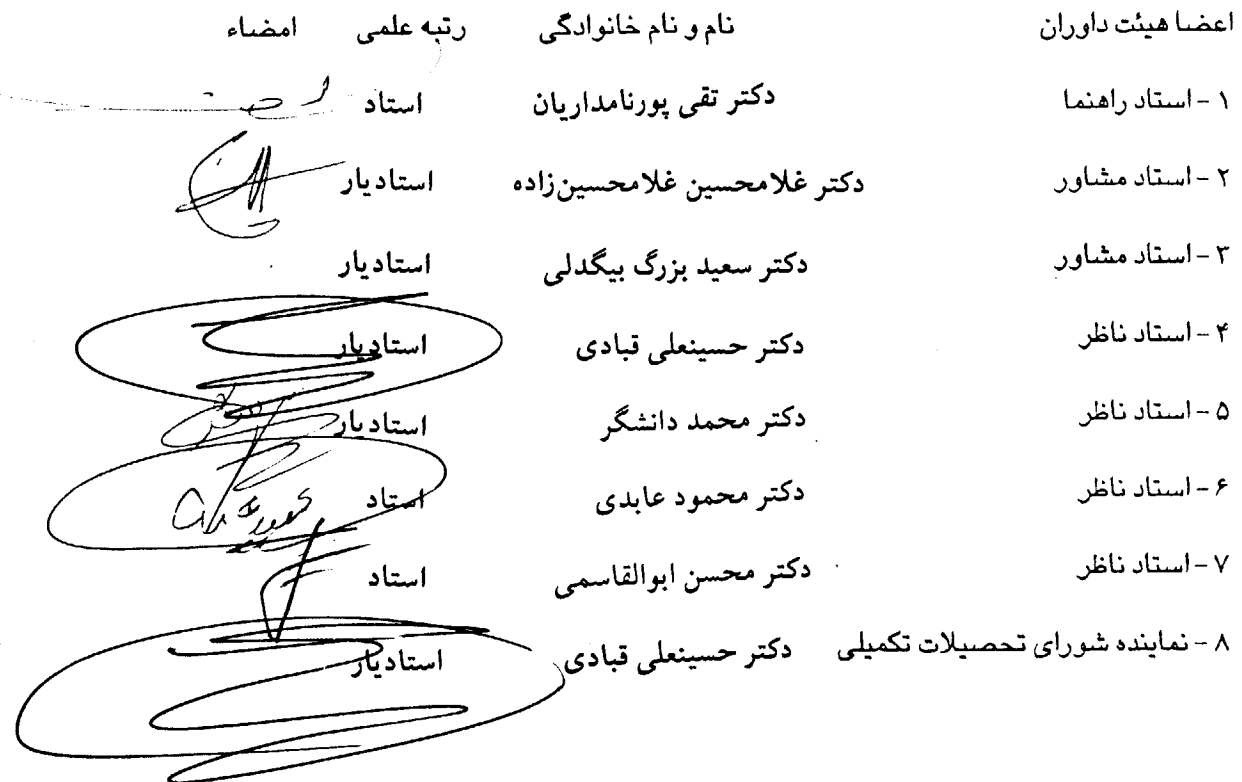 اعضا هیئت داوران نام و نام خانوادگی رتبه علمی امضاء
۱ - استاد راهنما دکتر تقی پورنامداریان استاد
۲ - استاد مشاور دکتر غلامحسین غلامحسین‌زاده استادیار
۳ - استاد مشاور دکتر سعید بزرگ بیگدلی استادیار
۴ - استاد ناظر دکتر حسینعلی قبادی استادیار
۵ - استاد ناظر دکتر محمد دانشگر استادیار
۶ - استاد ناظر دکتر محمود عابدی استاد
۷ - استاد ناظر دکتر محسن ابوالقاسمی استاد
۸ - نماینده شورای تحصیلات تکمیلی دکتر حسینعلی قبادی استادیار